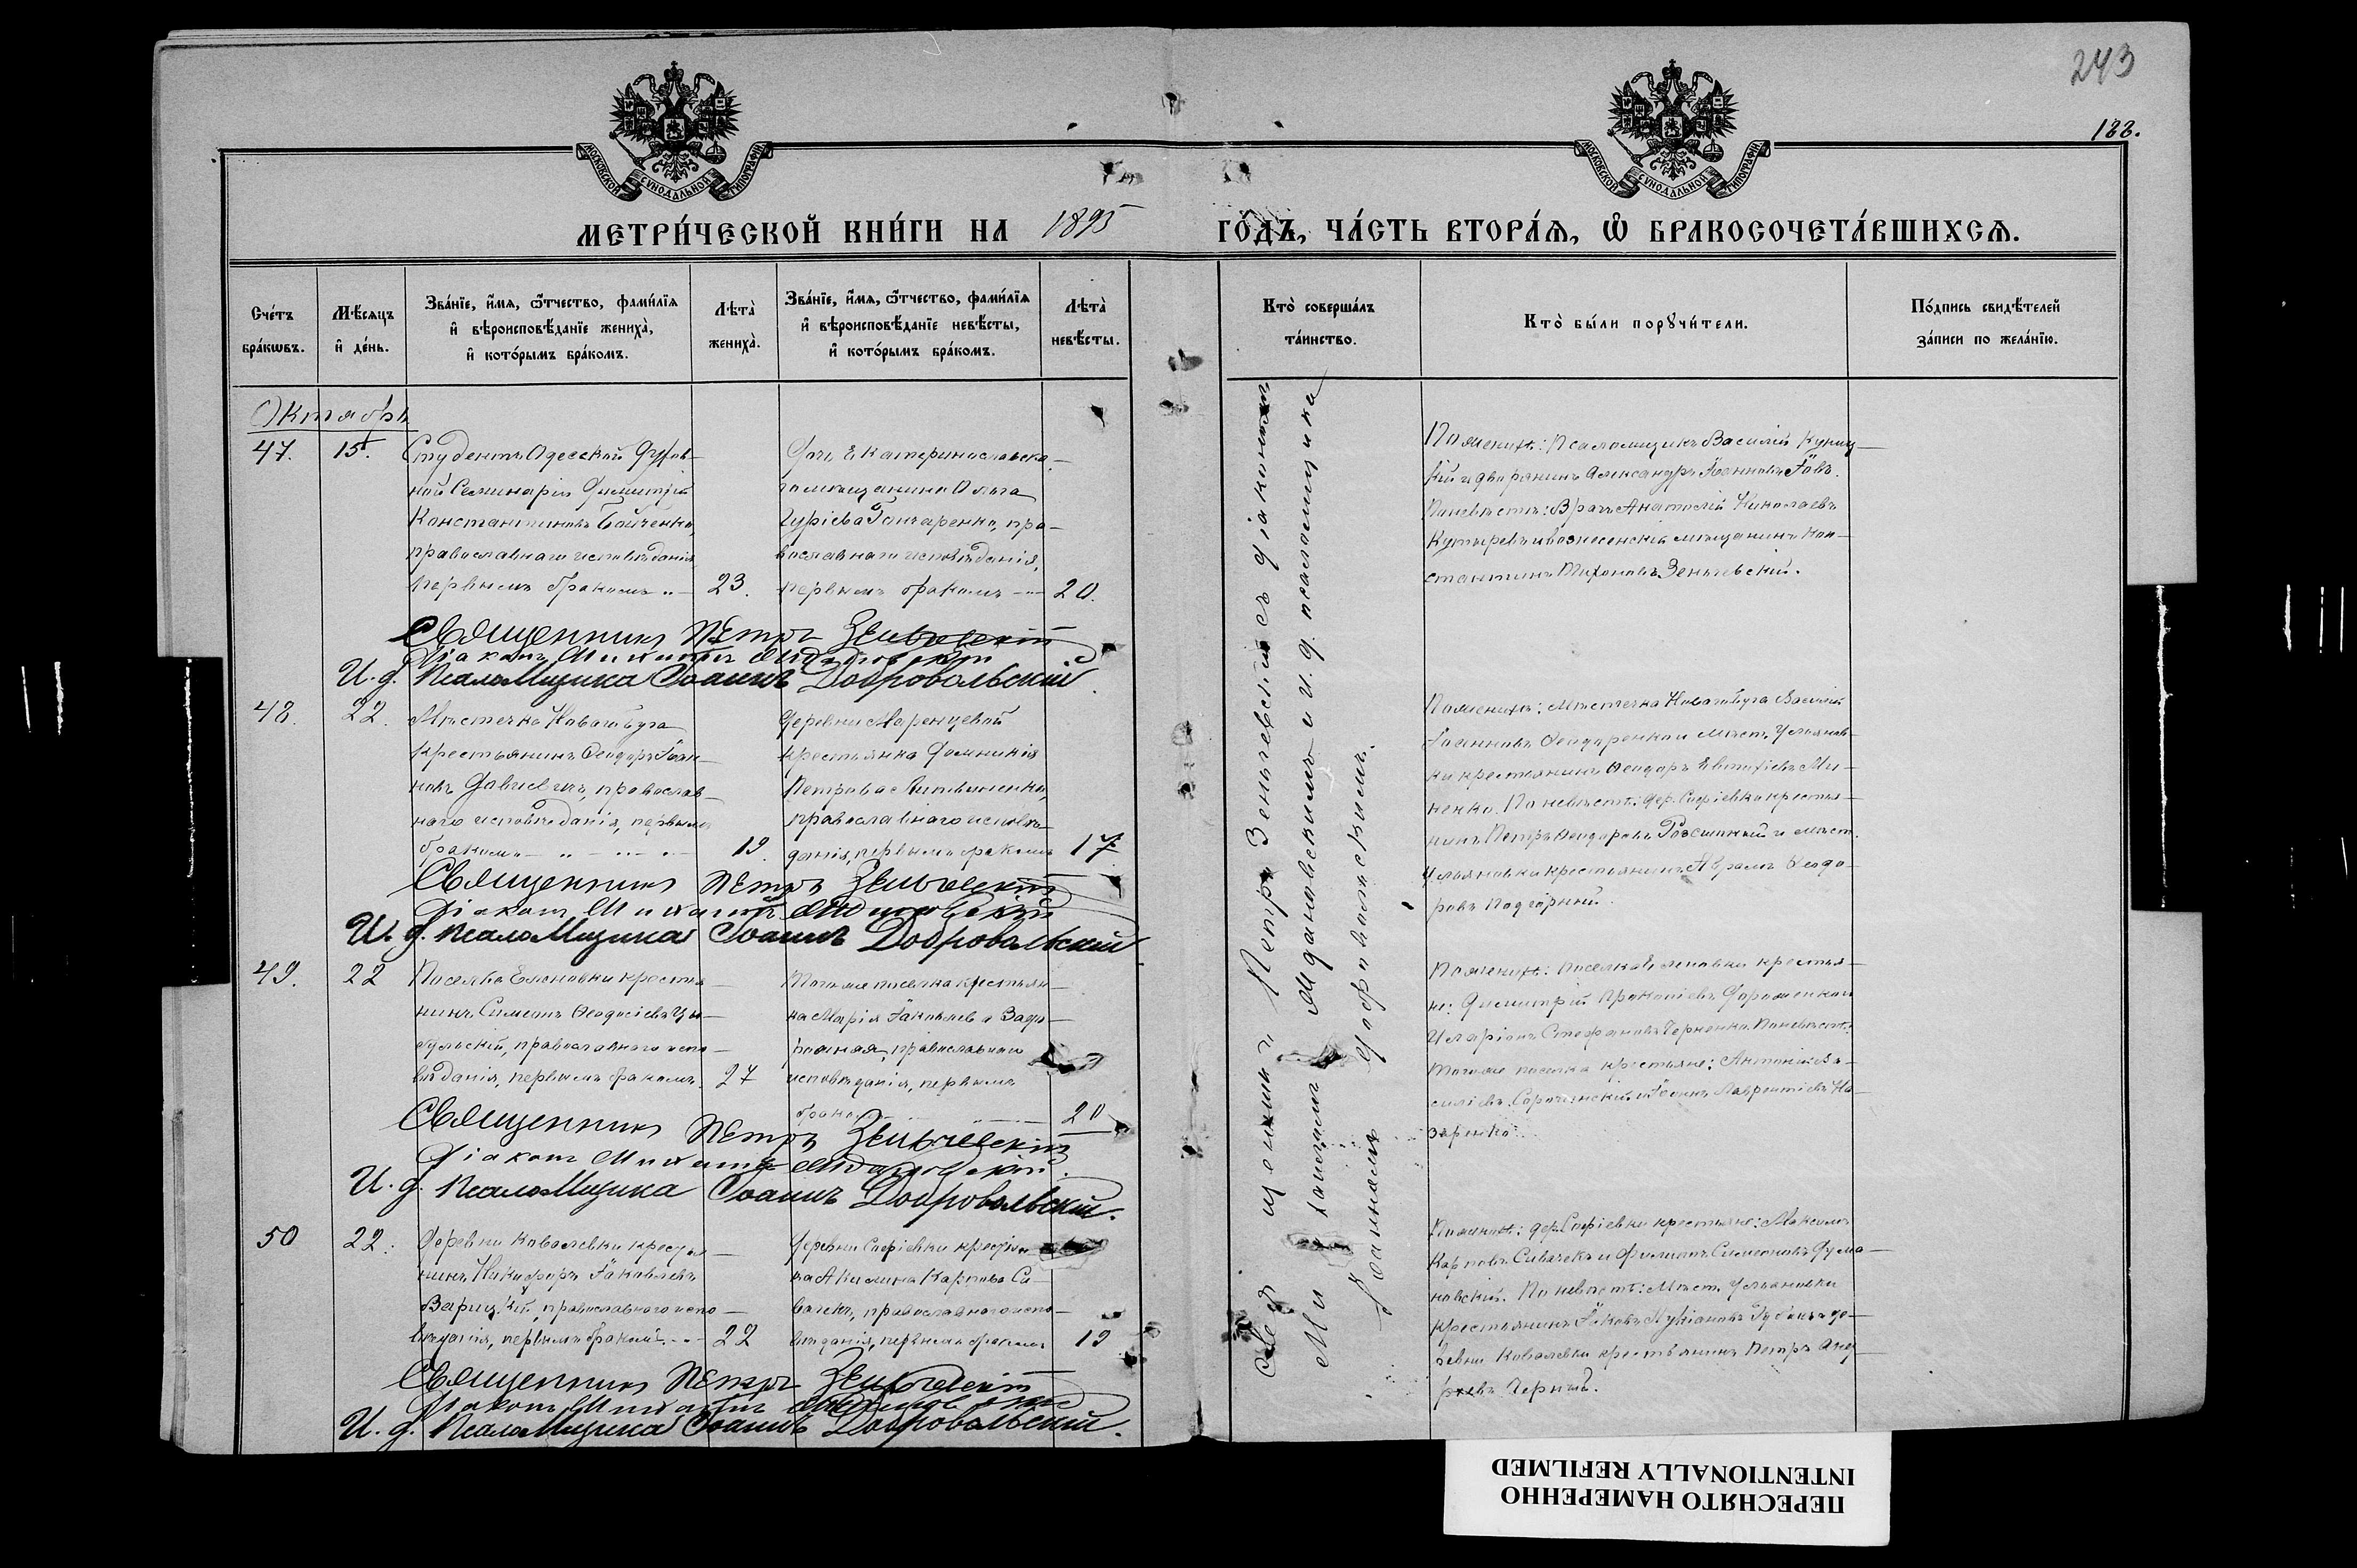 243
188.
МОСКОВСКОЙ СУНОДАЛЬНОЙ ТИПОГРАФІИ
МОСКОВСКОЙ СУНОДАЛЬНОЙ ТИПОГРАФІИ
МЕТРИ́ЧЕСКОЙ КНИ́ГИ НА 1895 ГО́ДЪ, ЧА́СТЬ ВТОРА́Ѧ, Ѡ҆ БРАКОСОЧЕТА́ВШИХСѦ.
Сче́тъ
бра́кѡвъ.
Мѣ́сяцъ
и҆ де́нь.
Зва́нїе, и҆́мѧ, ѻ҆́тчество, фами́лїѧ
и҆ вѣроисповѣ́данїе жениха̀,
и҆ кото́рымъ бра́комъ.
Лѣ́та̀
жениха̀.
Зва́нїе, и҆́мѧ, ѻ҆́тчество, фами́лїѧ
и҆ вѣроисповѣ́данїе невѣ́сты,
и҆ кото́рымъ бра́комъ.
Лѣ́та̀
невѣ́сты.
Кто̀ соверша́лъ
та́инство.
Кто̀ бы́ли порꙋчи́тели.
По́дпись свидѣ́телей
за́писи по жела́нїю.
Октябрь
47.
15.
Студентъ Одесской Духов-
ной Семинаріи Димитрій
Константиновъ Бойченко,
православнаго исповѣданія
первымъ бракомъ
23.
Дочь Екатеринославска-
го мѣщанина Ольга
Гуріева Гончаренко, пра-
вославнаго исповѣданія,
первымъ бракомъ
20.
По женихѣ: Псаломщикъ Василій Куниц-
кій и дворянинъ Александръ Іоанновъ
По невѣстѣ: Врачъ Анатолій Николаевъ
и вознесенскій мѣщанинъ Кон-
стантинъ Тихоновъ Зенчевскій.
Священникъ Петръ Зеньчевскій
Діаконъ Михаилъ Ждановскій
И. д. Псаломщика Іоаннъ Добровольскій.
48.
22.
Мѣстечка Новаго Буга
крестьянинъ Ѳеодоръ Іоан-
новъ православ-
наго исповѣданія, первымъ
бракомъ
19.
Деревни Маренцевой
крестьянка Домникія
Петрова Литвиненко,
православнаго исповѣ-
данія, первымъ бракомъ
17.
По женихѣ: мѣстечка Новаго Буга Василій
Іоанновъ Ѳеодоренко и мѣст. Ульянов-
ки крестьянинъ Ѳеодоръ Евтихіевъ Ми-
ненко. По невѣстѣ: дер. Софіевки крестья-
нинъ Петръ Ѳеодоровъ и мѣст.
Ульяновки крестьянинъ Аврамъ Ѳеодо-
ровъ Подгорный.
Священникъ Петръ Зеньчевскій
Діаконъ Михаилъ Ждановскій
И. д. Псаломщика Іоаннъ Добровольскій
49.
22
Поселка Еленовки крестья-
нинъ Симеонъ Ѳеодосіевъ Цы-
бульскій, православнаго испо-
вѣданія, первымъ бракомъ.
27
Тогоже поселка крестьян-
ка Марія Іаковлева
православнаго
исповѣданія, первымъ
бракомъ
20
По женихѣ: поселка Еленовки крестья-
не: Димитрій Прокопіевъ Дороженко и
Иларіонъ Стефановъ Черненко. По невѣстѣ:
тогоже поселка крестьяне: Антоній Ва-
силіевъ Сорочинскій и Іоаннъ Лаврентіевъ На-
заренко.
Священникъ Петръ Зеньчевскій
Діаконъ Михаилъ Ждановскій.
И. д. Псаломщика Іоаннъ Добровольскій.
50
22.
Деревни Ковалевки крестья-
нинъ Никифоръ Іаковлевъ
Вариц.кій, православнаго испо-
вѣданія, первымъ бракомъ
22
Деревни Софіевки крестьян-
ка Акилина Карпова Си-
вачекъ, православнаго испо-
вѣданія, первымъ бракомъ
19
По женихѣ: дер. Софіевки крестьяне: Максимъ
Карповъ Сивачекъ и Филиппъ Симеоновъ Дума-
новскій. По невѣстѣ: мѣст. Ульяновки
крестьянинъ Іаковъ Лукіановъ и де-
ревни Ковалевки крестьянинъ Петръ Анд-
реевъ Черный.
Священникъ Петръ Зеньчевскій
Діаконъ Михаилъ Ждановскій
И. д. Псаломщика Іоаннъ Добровольскій.
Священникъ Петръ Зеньчевскій съ діакономъ
Михаиломъ Ждановскимъ и и. д. псаломщика
Іоанномъ Добровольскимъ.
ПЕРЕСНЯТО НАМЕРЕННО
INTENTIONALLY REFILMED